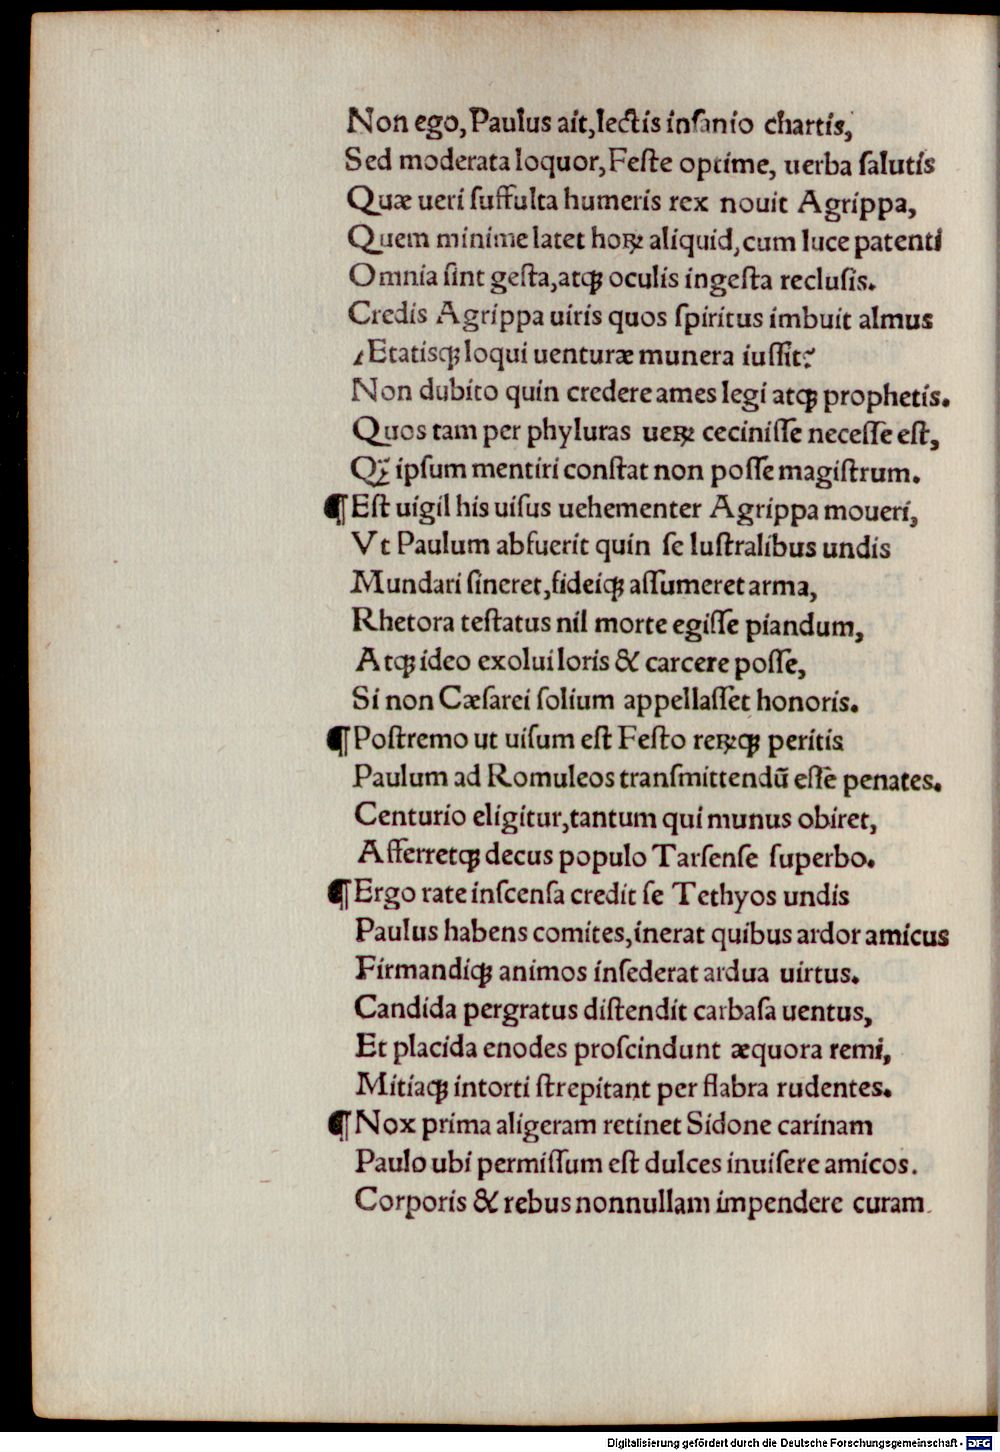 Non ego, Paulus ait, lectis inſanio chartis,
Sed moderata loquor, Feſte optime, uerba ſalutis
Quæ ueri ſuffulta humeris rex nouit Agrippa,
Quem minime latet hoꝝ aliquid, cum luce patenti
Omnia ſint geſta, atqꝫ oculis ingeſta recluſis.
Credis Agrippa uiris quos ſpiritus imbuit almus
Ætatisqꝫ loqui uenturæ munera iuſſit?
Non dubito quin credere ames legi atqꝫ prophetis.
Quos tam per phyluras ueꝝ ceciniſſe neceſſe eſt,
Qꝫ̃ ipſum mentiri conſtat non poſſe magiſtrum.
¶ Eſt uigil his uiſus uehementer Agrippa moueri,
Vt Paulum abfuerit quin ſe luſtralibus undis
Mundari ſineret, fideiqꝫ aſſumeret arma,
Rhetora teſtatus nil morte egiſſe piandum,
Atqꝫ ideo exolui loris & carcere poſſe,
Si non Cæſarei ſolium appellaſſet honoris.
¶ Poſtremo ut uiſum eſt Feſto reꝝqꝫ peritis
Paulum ad Romuleos tranſmittendū eſſe penates.
Centurio eligitur, tantum qui munus obiret,
Afferretqꝫ decus populo Tarſenſe ſuperbo.
¶ Ergo rate inſcenſa credit ſe Tethyos undis
Paulus habens comites, inerat quibus ardor amicus
Firmandiqꝫ animos inſederat ardua uirtus.
Candida pergratus diſtendit carbaſa uentus,
Et placida enodes proſcindunt æquora remi,
Mitiaqꝫ intorti ſtrepitant per flabra rudentes.
¶ Nox prima aligeram retinet Sidone carinam
Paulo ubi permiſſum eſt dulces inuiſere amicos.
Corporis & rebus nonnullam impendere curam.
Digitalisierung gefördert durch die Deutsche Forschungsgemeinschaft - DFG